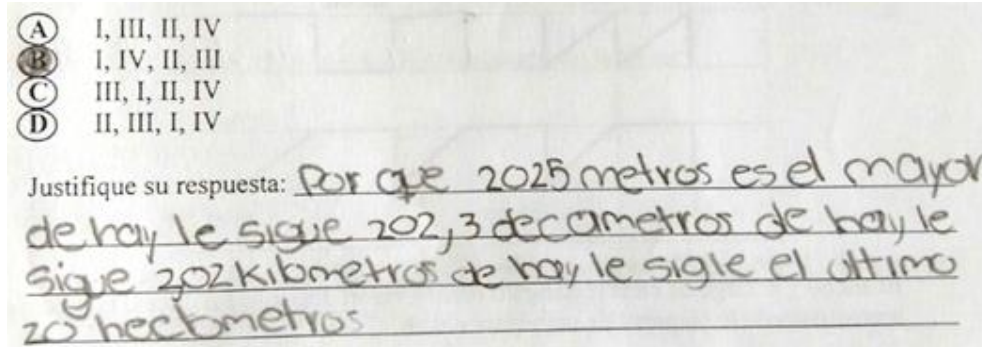 A I, III, II, IV
B I, IV, II, III
C III, I, II, IV
D II, III, I, IV
Justifique su respuesta: Por que 2025 metros es el mayor
de hay le sigue 202,3 decametros de hay le
sigue 2,02 kilometros de hay le sigle el ultimo
20 hectometros